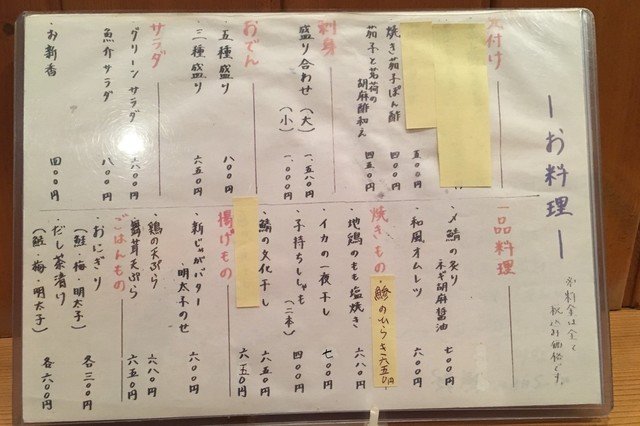 ーお料理ー
※料金は全て
税込み価格です。
付け
五〇〇円
焼き茄子ぽん酢 四〇〇円
茄子と茗荷の
胡麻酢和え 四五〇円
刺身
盛り合わせ(大) 一、五八〇円
(小) 一、〇〇〇円
おでん
・五種盛り 八〇〇円
・三種盛り 六五〇円
サラダ
・グリーンサラダ 六〇〇円
・魚介サラダ 八〇〇円
・お新香 四〇〇円
一品料理
・〆鯖の炙り
ネギ胡麻醤油 七〇〇円
・和風オムレツ 六〇〇円
焼きもの
・鯵のひらき 六五〇円
・地鶏のもも塩焼き 六八〇円
・イカの一夜干し 七〇〇円
・子持ちししゃも(二本) 四〇〇円
・鯖の文化干し 六五〇円
六五〇円
揚げもの
・新じゃがバター
明太子のせ 六〇〇円
・鶏の天ぷら 六八〇円
・舞茸天ぷら 六五〇円
ごはんもの
・おにぎり
(鮭・梅・明太子) 各三〇〇円
・だし茶漬け
(鮭・梅・明太子) 各六〇〇円